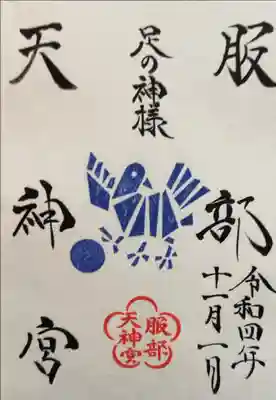 服部
足の神様
天神宮
令和四年
十一月一日
服部
天神宮